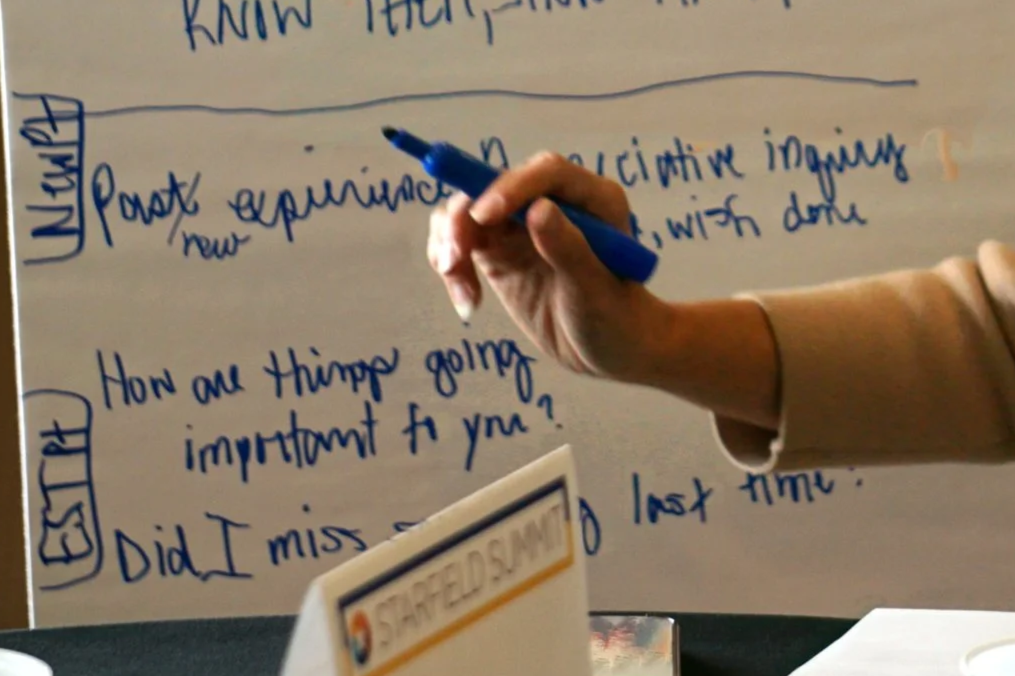 KNOW
New Pt
Past experience inquiry
new , wish done
How are things going
important to you?
EST Pt
Did I miss last time?
STARFIELD SUMMIT